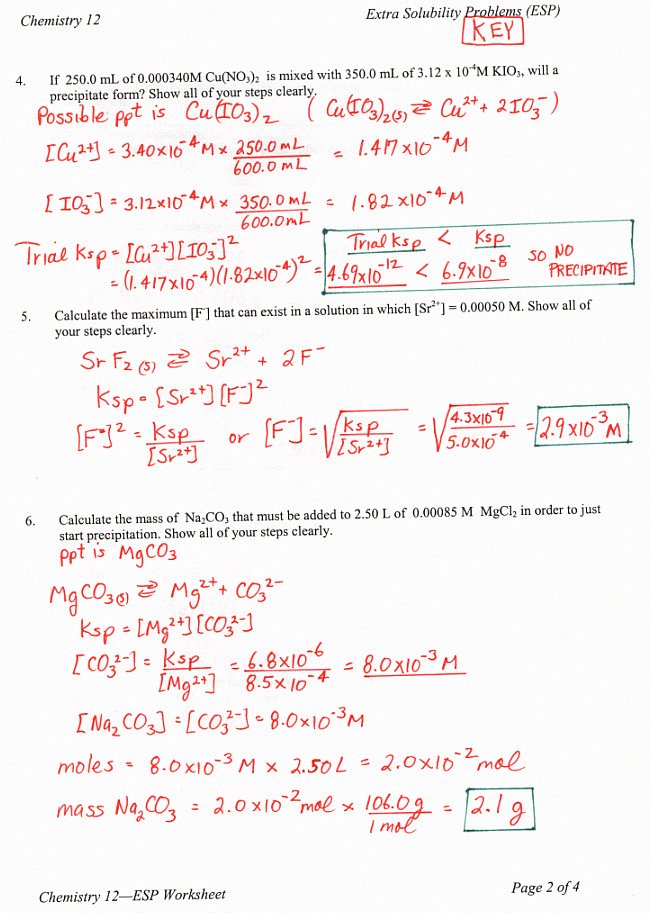 Chemistry 12
Extra Solubility Problems (ESP)
KEY
4. If 250.0 mL of 0.000340M Cu(NO₃)₂ is mixed with 350.0 mL of 3.12 x 10⁻⁴M KIO₃, will a
precipitate form? Show all of your steps clearly.
Possible ppt is Cu(IO₃)₂ ( Cu(IO₃)₂(s) ⇌ Cu²⁺ + 2IO₃⁻ )
[Cu²⁺] = 3.40x10⁻⁴M x 250.0mL / 600.0 mL = 1.417x10⁻⁴M
[IO₃⁻] = 3.12x10⁻⁴M x 350.0mL / 600.0mL = 1.82x10⁻⁴M
Trial Ksp = [Cu²⁺][IO₃⁻]²
= (1.417x10⁻⁴)(1.82x10⁻⁴)² =
Trial Ksp < Ksp
4.69x10⁻¹² < 6.9x10⁻⁸
SO NO
PRECIPITATE
5. Calculate the maximum [F⁻] that can exist in a solution in which [Sr²⁺] = 0.00050 M. Show all of
your steps clearly.
SrF₂(s) ⇌ Sr²⁺ + 2F⁻
Ksp = [Sr²⁺][F⁻]²
[F⁻]² = Ksp / [Sr²⁺] or [F⁻] = √(Ksp / [Sr²⁺]) = √(4.3x10⁻⁹ / 5.0x10⁻⁴) = 2.9x10⁻³M
6. Calculate the mass of Na₂CO₃ that must be added to 2.50 L of 0.00085 M MgCl₂ in order to just
start precipitation. Show all of your steps clearly.
ppt is MgCO₃
MgCO₃(s) ⇌ Mg²⁺ + CO₃²⁻
Ksp = [Mg²⁺][CO₃²⁻]
[CO₃²⁻] = Ksp / [Mg²⁺] = 6.8x10⁻⁶ / 8.5x10⁻⁴ = 8.0x10⁻³M
[Na₂CO₃] = [CO₃²⁻] = 8.0x10⁻³M
moles = 8.0x10⁻³ M x 2.50L = 2.0x10⁻² mol
mass Na₂CO₃ = 2.0x10⁻² mol x 106.0g / 1 mol = 2.1 g
Chemistry 12—ESP Worksheet
Page 2 of 4